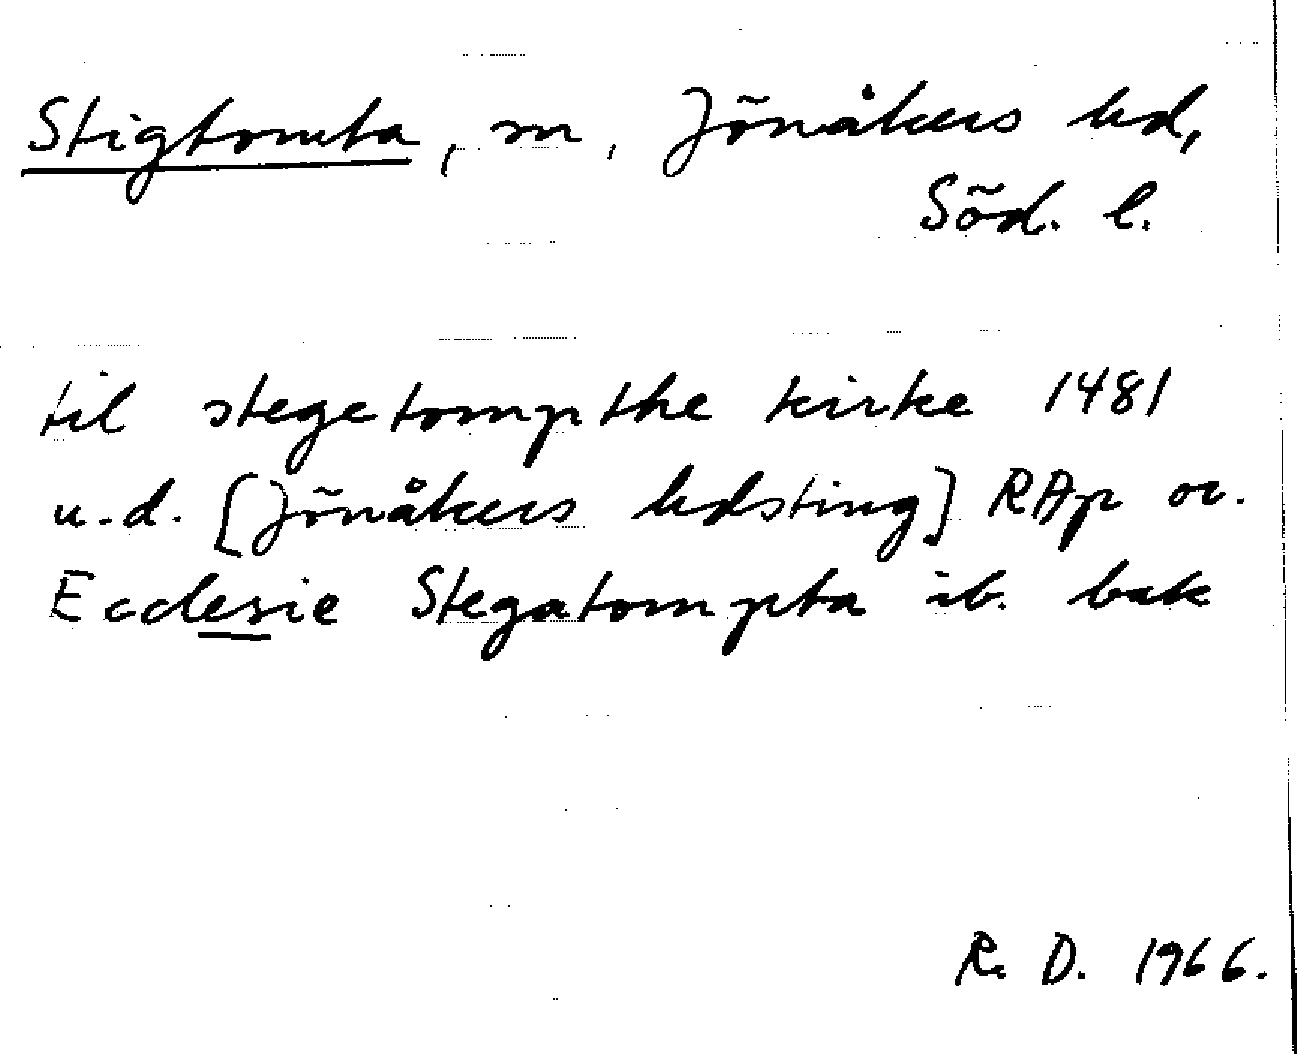 Stigtomta, sn, Jönåkers hd,
Söd. l.
til stegetompthe kirke 1481
u.d. [Jönåkers hdsting] RAp or.
Ecclesie Stegatompta ib. bak
R. D. 1966.